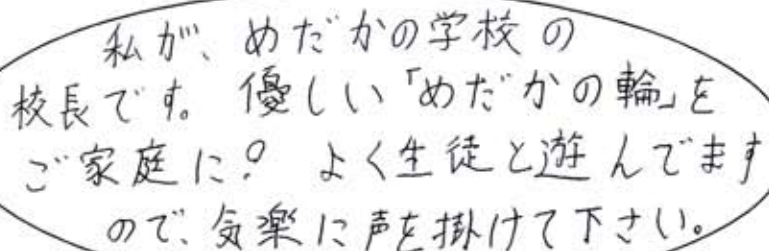 私が、めだかの学校の
校長です。優しい「めだかの輪」を
ご家庭に！よく生徒と遊んでます
ので、気楽に声を掛けて下さい。